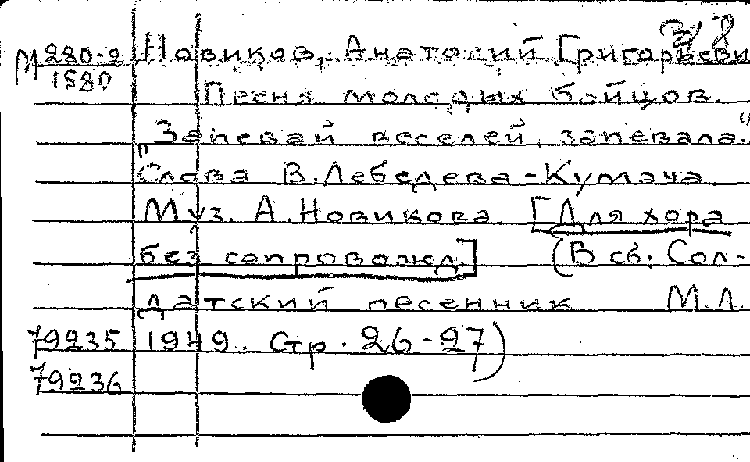 М 280-2 Новиков, Анатолий Григорьеви
1580
Песня молодых бойцов.
"Запевай веселей, запевала."
Слова В. Лебедева-Кумача
Муз. А. Новикова [Для хора
без сопровожд.] (В сб. Сол-
датский песенник М.Л.
79235 1949. Стр. 26-27)
79236